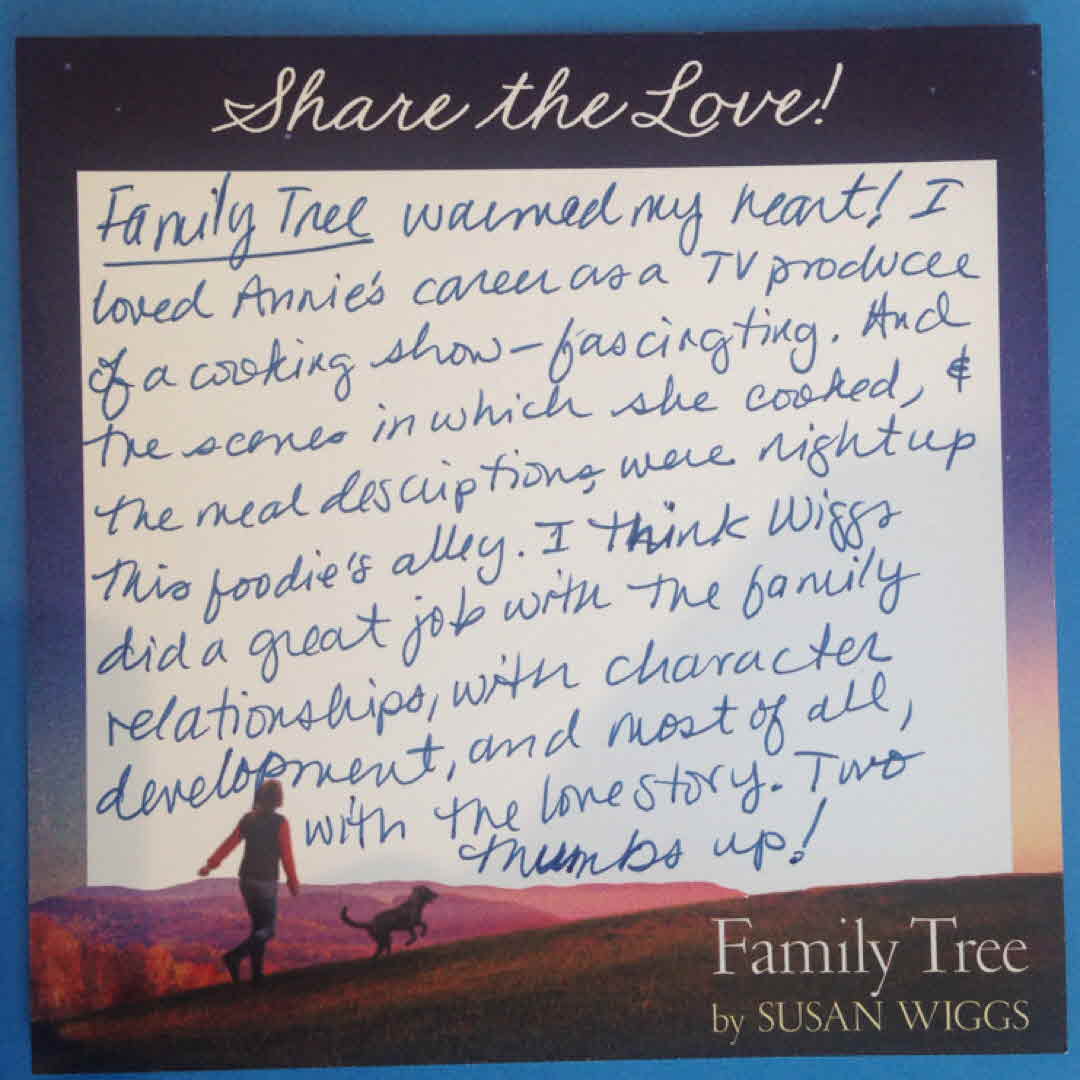 Share the Love!
Family Tree warmed my heart! I
loved Annie's career as a TV producer
of a cooking show – fascingting. And
the scenes in which she cooked, &
the meal descriptions, were right up
this foodie's alley. I think Wiggs
did a great job with the family
relationships, with character
development, and most of all,
with the love story. Two
thumbs up!
Family Tree
by SUSAN WIGGS